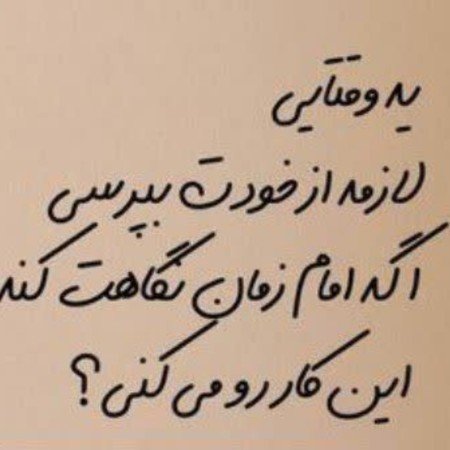 یه وقتایی
لازمه از خودت بپرسی
اگه امام زمان نگاهت کند
این کار رو می کنی؟